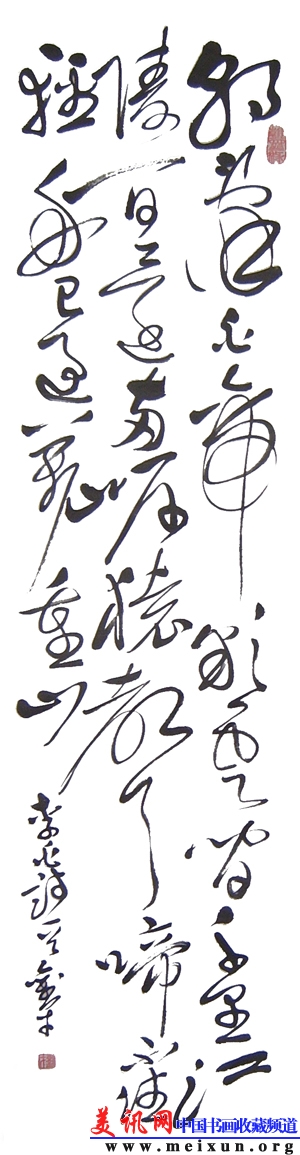 朝辞白帝彩云间千里江
陵一日还两岸猿声啼不住
轻舟已过万重山
李白诗一
美讯网 中国书画收藏频道
www.meixun.org